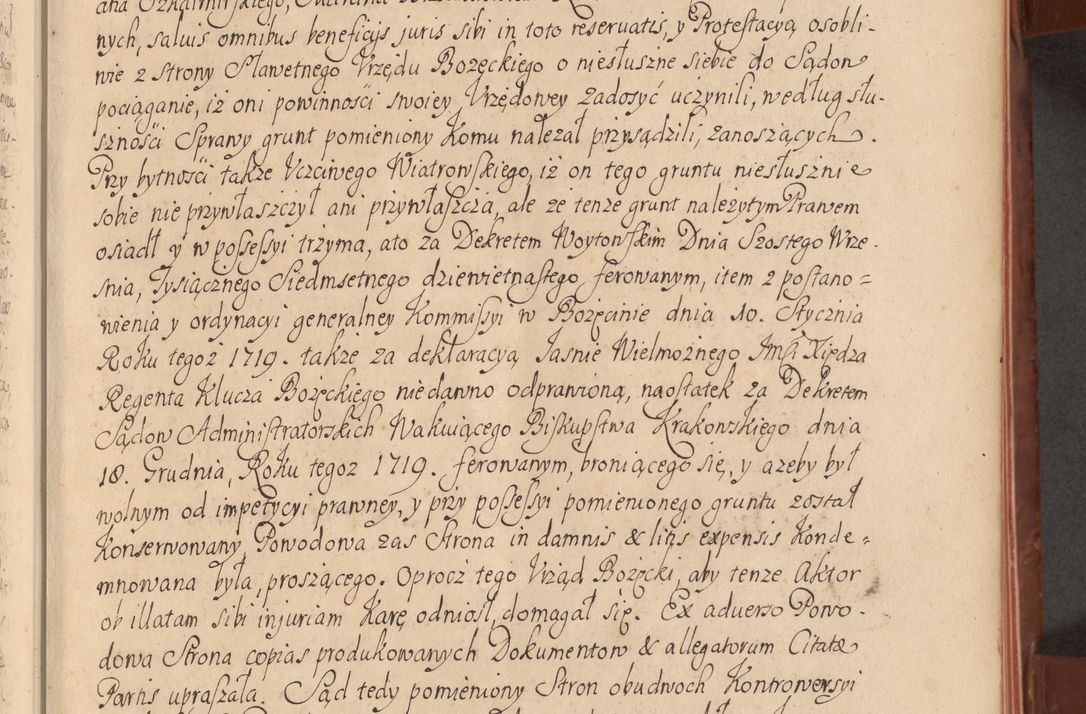 nych, salvis omnibus beneficijs juris sibi in toto reservatis, y Protestacyą osobli-
wie z strony Sławetnego Vrzędu Bozęckiego o niesłuszne siebie do Sądow
pociąganie, iż oni powinności swoiey Vrzędowey zadosyć uczynili, według słu-
szności Sprawy grunt pomieniony komu należał przysądzili, zanoszących.
Przy bytności także Vczciwego Wiatrowskiego, iż on tego gruntu niesłusznie
sobie nie przywłaszczył ani przywłaszcza, ale że tenże grunt należytym Prawem
osiadł y w possessyi trzyma, a to za Dekretem Woytowskim Dnia Szostego Wrze-
snia, Tysiącznego Siedmsetnego dziewietnastego ferowanym, item z postano=
wienia y ordynacyi generalney Kommissyi w Bozęcinie dnia 10. Stycznia
Roku tegoż 1719. także za deklaracyą Jasnie Wielmożnego Jmsi Xiędza
Regenta Klucza Bozęckiego niedawno odprawioną, naostatek za Dekretem
Sądow Administratorskich Wakuiącego Biskupstwa Krakowskiego dnia
18. Grudnia, Roku tegoz 1719. ferowanym, broniącego się, y azeby był
wolnym od impetycyi prawney, y przy possessyi pomienionego gruntu został
Konserwowany, Powodowa zas Strona in damnis & litis expensis Konde=
mnowana była, proszącego. Oprocz tego Vrząd Bozęcki, aby tenże Aktor
ob illatam sibi injuriam Karę odniosł, domagał się. Ex adverso Powo-
dowa Strona copias produkowanych Dokumentow & allegatorum Citatæ
Partis upraszała. Sąd tedy pomieniony Stron obudwoch Kontrowersyi